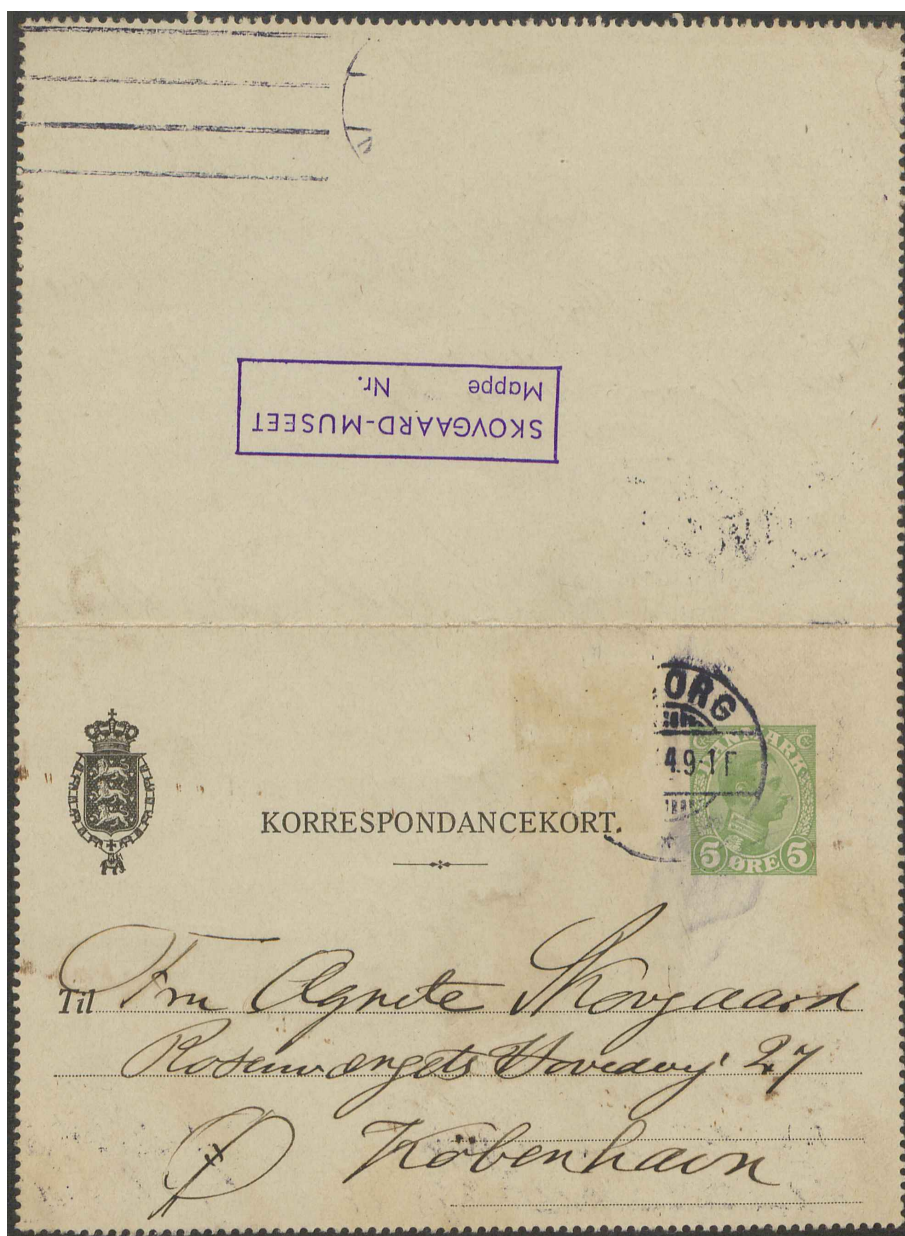 SKOVGAARD-MUSEET
Mappe Nr.
ORG
4.9-1F
KORRESPONDANCEKORT.
5 ØRE 5
Til Fru Agnete Skovgaard
Rosenvængets Hovedvej 27
Ø København